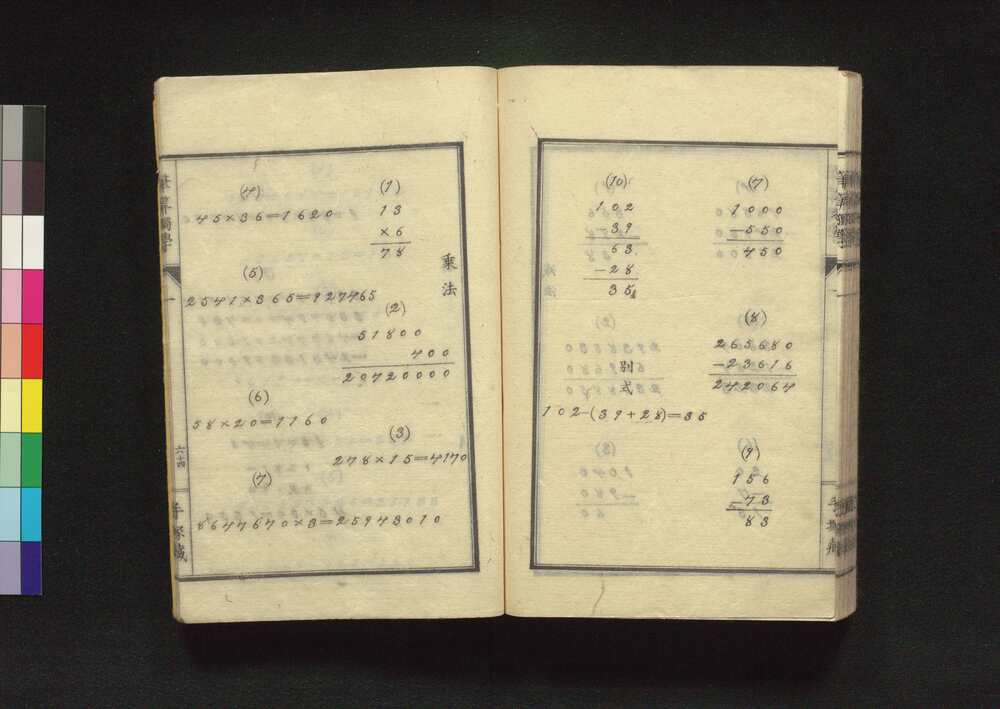 (7)
1000
−550
450
(8)
265680
−23616
242064
(9)
156
−73
83
(10)
102
−39
63
−28
35
別式
102−(39+28)=35
乘法
(1)
13
×6
78
(2)
51800
400
20720000
(3)
278×15=4170
(4)
45×36=1620
(5)
2541×365=927465
(6)
58×20=1160
(7)
8647670×3=25943010
六十四